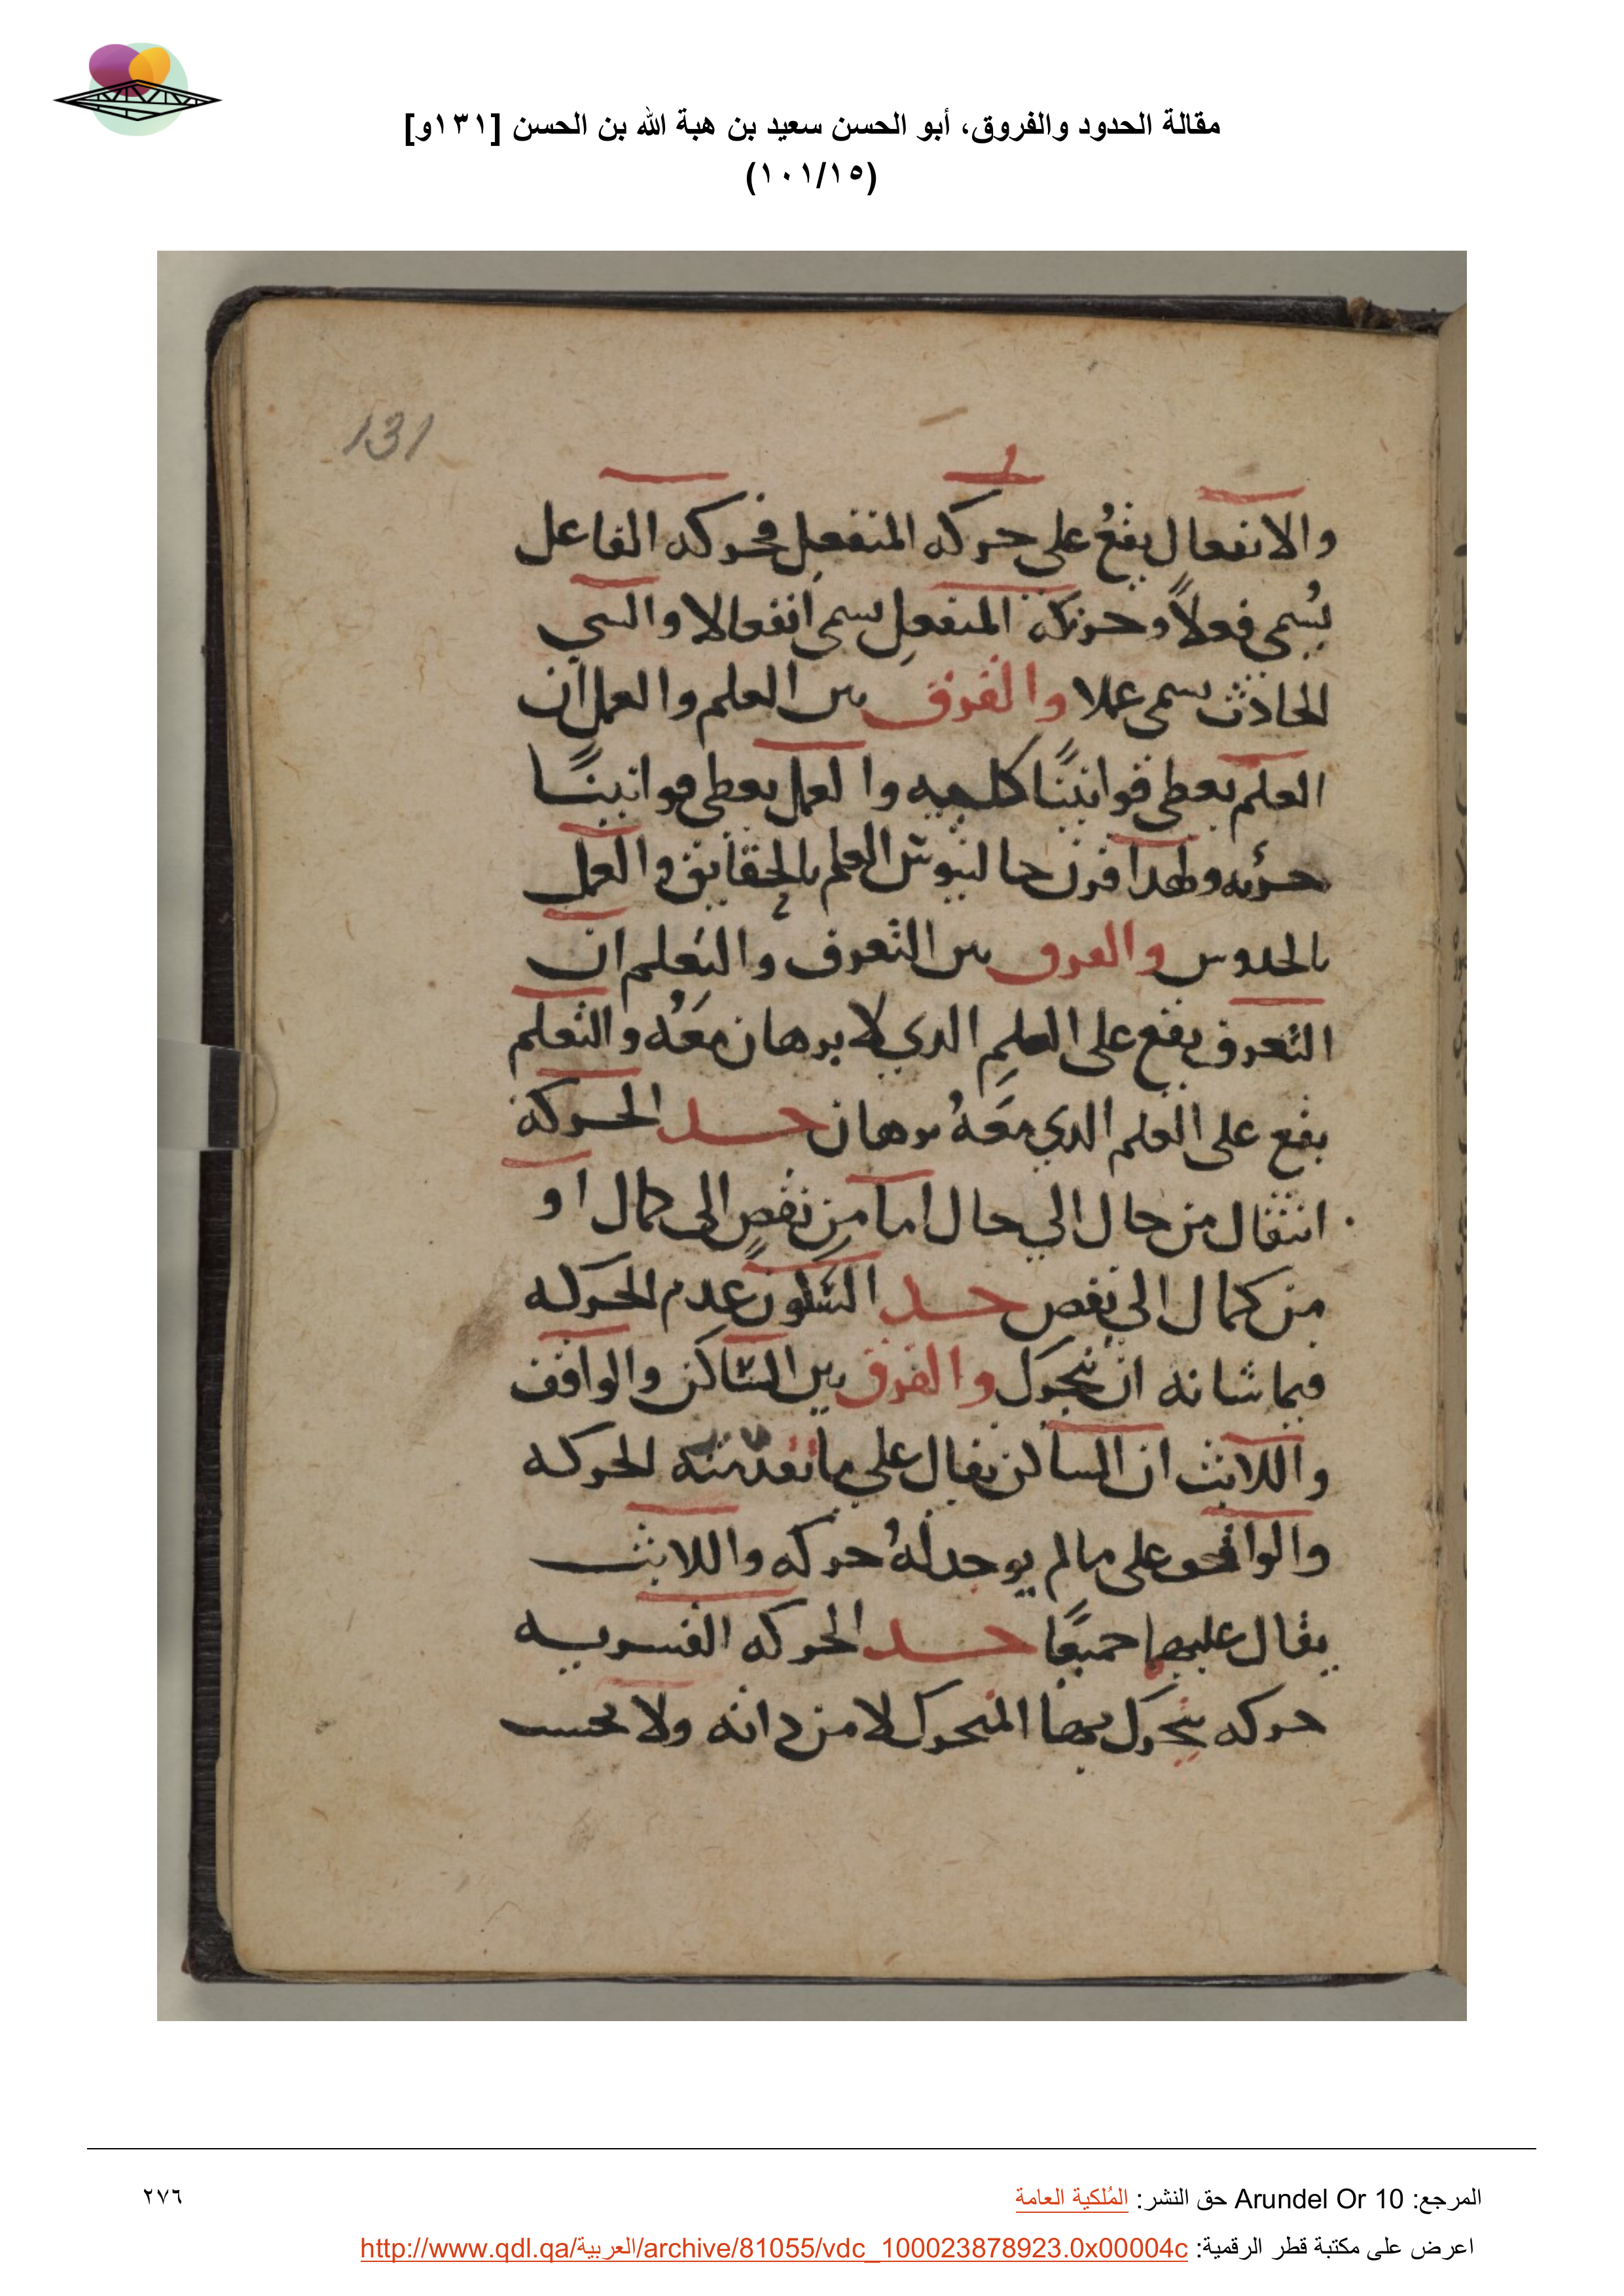 مقالة الحدود والفروق، أبو الحسن سعيد بن هبة الله بن الحسن [١٣١و]
(١٠١/١٥)
131
والانفعال يقعُ على حركه المنفعل فحركه الفاعل
يُسمى فعلاً وحركة المنفعل يسمى انفعالا والسي
الحادث يسمى عملا والفرق بين العلم والعمل ان
العلم يعطى قوانينًا كليه والعمل يعطى قوانينًا
جزئيه ولهدا قرن جالينوس العلم بالحقايق والعمل
بالحدوس والفرق بين التعرف والتعلم ان
التعرف يقع على العلم الدي لا برهان معَهُ والتعلم
يقع على العلم الدي معَهُ برهان حد الحركة
انتقال من حال الي حال اما من نقصٍ الى كمال او
من كمال الى نقص حد السكون عدم الحركه
فيما شانه ان يتحرك والفرق بين الساكن والواقف
واللابث ان الساكن يقال على ما تقدمته الحركه
والواقف على ما لم يوجد لهُ حركه واللابث
يقال عليهما جميعًا حد الحركه القسريه
حركه يتحرك بها المتحرك لا من داته ولا بحسب
المرجع: Arundel Or 10 حق النشر: المُلكية العامة
٢٧٦
اعرض على مكتبة قطر الرقمية: http://www.qdl.qa/العربية/archive/81055/vdc_100023878923.0x00004c